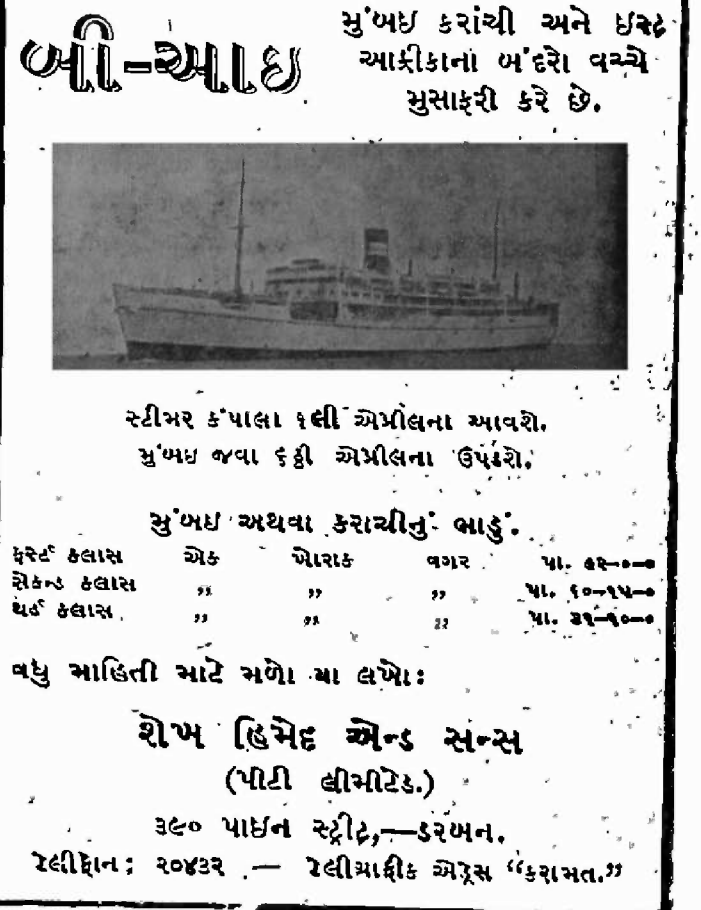 બી-આઇ
મુંબઇ કરાંચી અને ઇસ્ટ
આફ્રીકાના બંદરો વચ્ચે
મુસાફરી કરે છે.
સ્ટીમર કંપાલા ૧લી એપ્રીલના આવશે.
મુંબઇ જવા ૬ઠ્ઠી એપ્રીલના ઉપડશે.
મુંબઇ અથવા કરાચીનું ભાડું.
ફર્સ્ટ કલાસ એક ખોરાક વગર પા. ૭૨-૦-૦
સેકન્ડ કલાસ ,, ,, ,, પા. ૬૦-૧૫-૦
થર્ડ કલાસ ,, ,, ,, પા. ૩૧-૧૦-૦
વધુ માહિતી માટે મળો યા લખો:
શેખ હિમેદ એન્ડ સન્સ
(પીટી લીમીટેડ.)
૩૯૦ પાઇન સ્ટ્રીટ,—ડરબન.
ટેલીફોન: ૨૦૪૩૨ — ટેલીગ્રાફીક એડ્રેસ “કરામત.”